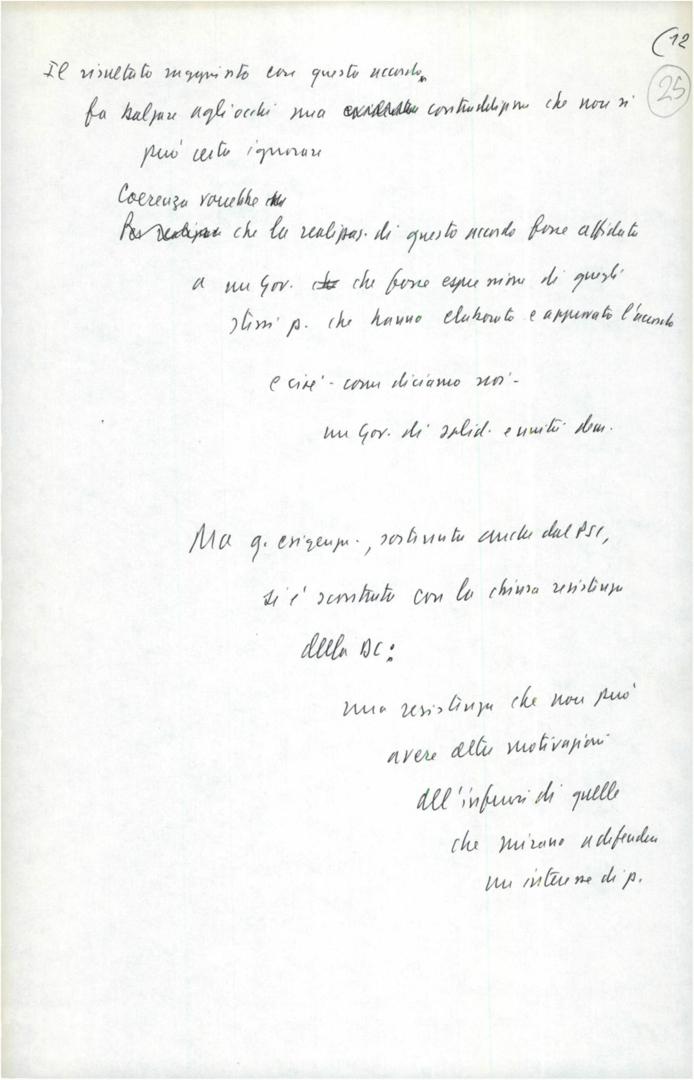 (12
25
Il risultato raggiunto con questo accordo,
fa balzare agli occhi una contraddizione che non si
può certo ignorare
Coerenza vorrebbe
che la realizzaz. di questo accordo fosse affidata
a un Gov. che fosse espressione di quegli
stessi p. che hanno elaborato e approvato l'accordo
e cioè - come diciamo noi -
un Gov. di solid. e unità dem.
Ma q. esigenza, sostenuta anche dal PSI,
si è scontrata con la chiusa resistenza
della DC:
una resistenza che non può
avere altre motivazioni
all'infuori di quelle
che mirano a difendere
un interesse di p.